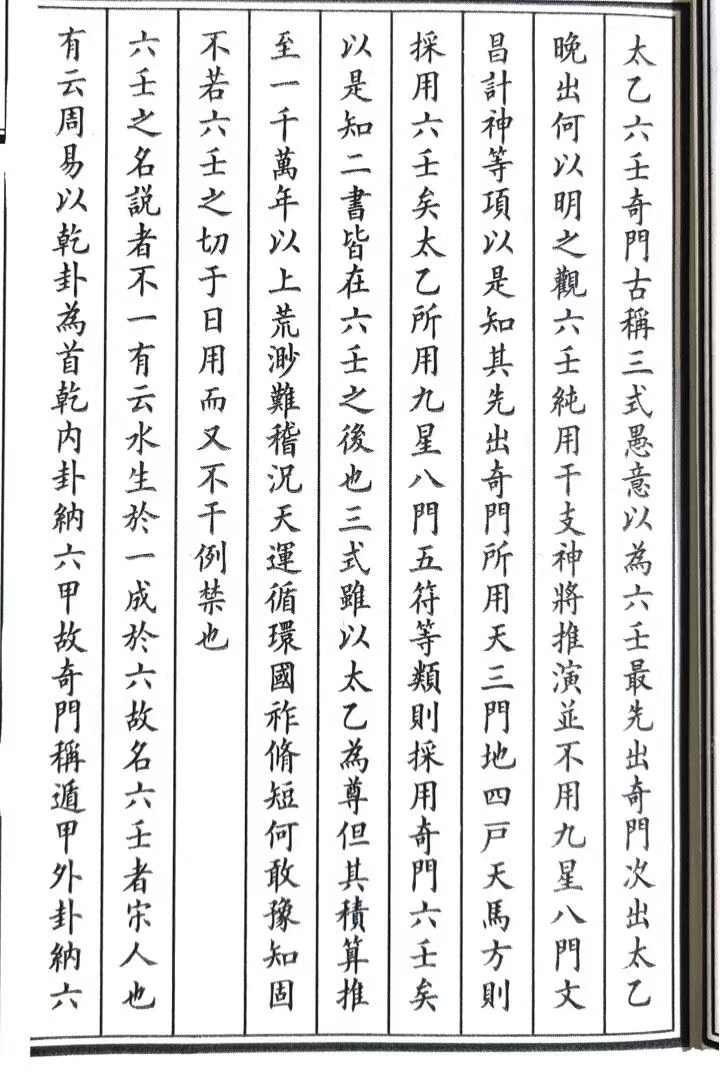 太乙六壬奇門古稱三式愚意以為六壬最先出奇門次出太乙
晚出何以明之觀六壬純用干支神將推演並不用九星八門文
昌計神等項以是知其先出奇門所用天三門地四戸天馬方則
採用六壬矣太乙所用九星八門五符等類則採用奇門六壬矣
以是知二書皆在六壬之後也三式雖以太乙為尊但其積算推
至一千萬年以上荒渺難稽況天運循環國祚脩短何敢豫知固
不若六壬之切于日用而又不干例禁也
六壬之名說者不一有云水生於一成於六故名六壬者宋人也
有云周易以乾卦為首乾内卦納六甲故奇門稱遁甲外卦納六